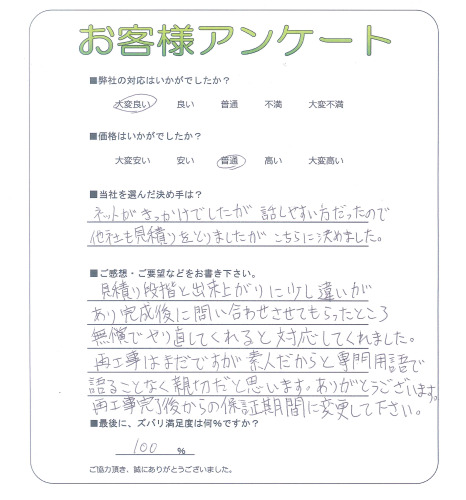 お客様アンケート
■弊社の対応はいかがでしたか？
大変良い 良い 普通 不満 大変不満
■価格はいかがでしたか？
大変安い 安い 普通 高い 大変高い
■当社を選んだ決め手は？
ネットがきっかけでしたが 話しやすい方だったので
他社も見積りをとりましたが こちらに決めました。
■ご感想・ご要望などをお書き下さい。
見積り段階と出来上がりに少し違いが
あり完成後に問い合わせさせてもらったところ
無償でやり直してくれると対応してくれました。
再工事はまだですが素人だからと専門用語で
語ることなく親切だと思います。ありがとうございます。
再工事完了後からの保証期間に変更して下さい。
■最後に、ズバリ満足度は何％ですか？
100 ％
ご協力頂き、誠にありがとうございました。